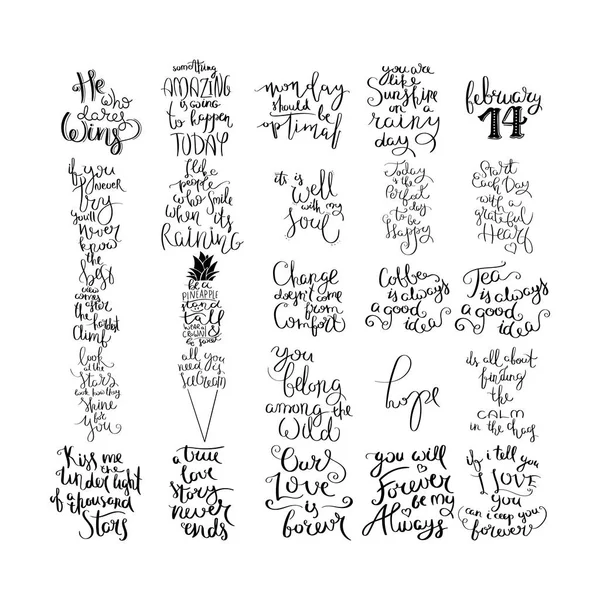 He
who
dares
Wins
something
AMAZING
is going
to happen
TODAY
monday
should be
optimal
you are
like
Sunshine
on a
rainy
day
february
14
if you
never
try
you'll
never
know
the
best
view
comes
after
the hardest
climb
look
at the
Stars
look how they
Shine
for
you
I like
people
who smile
when its
RAINING
it is
well
with my
soul
Today
is the
Perfect
day
to be
Happy
Start
Each Day
with a
grateful
Heart
be a
PINEAPPLE
stand
tall
WEAR A
CROWN
be sweet
all you
need is
ICECREAM
Change
doesn't come
from
Comfort
Coffee
is always
a good
idea
Tea
is always
a good
idea
you
belong
among the
Wild
hope
its all about
finding
the
CALM
in the chaos
Kiss me
the
under light
of a thousand
Stars
a true
love
story
never
ends
Ours
Love
is
forever
you will
Forever
be my
Always
if i tell you
I LOVE
you
can i keep you
forever